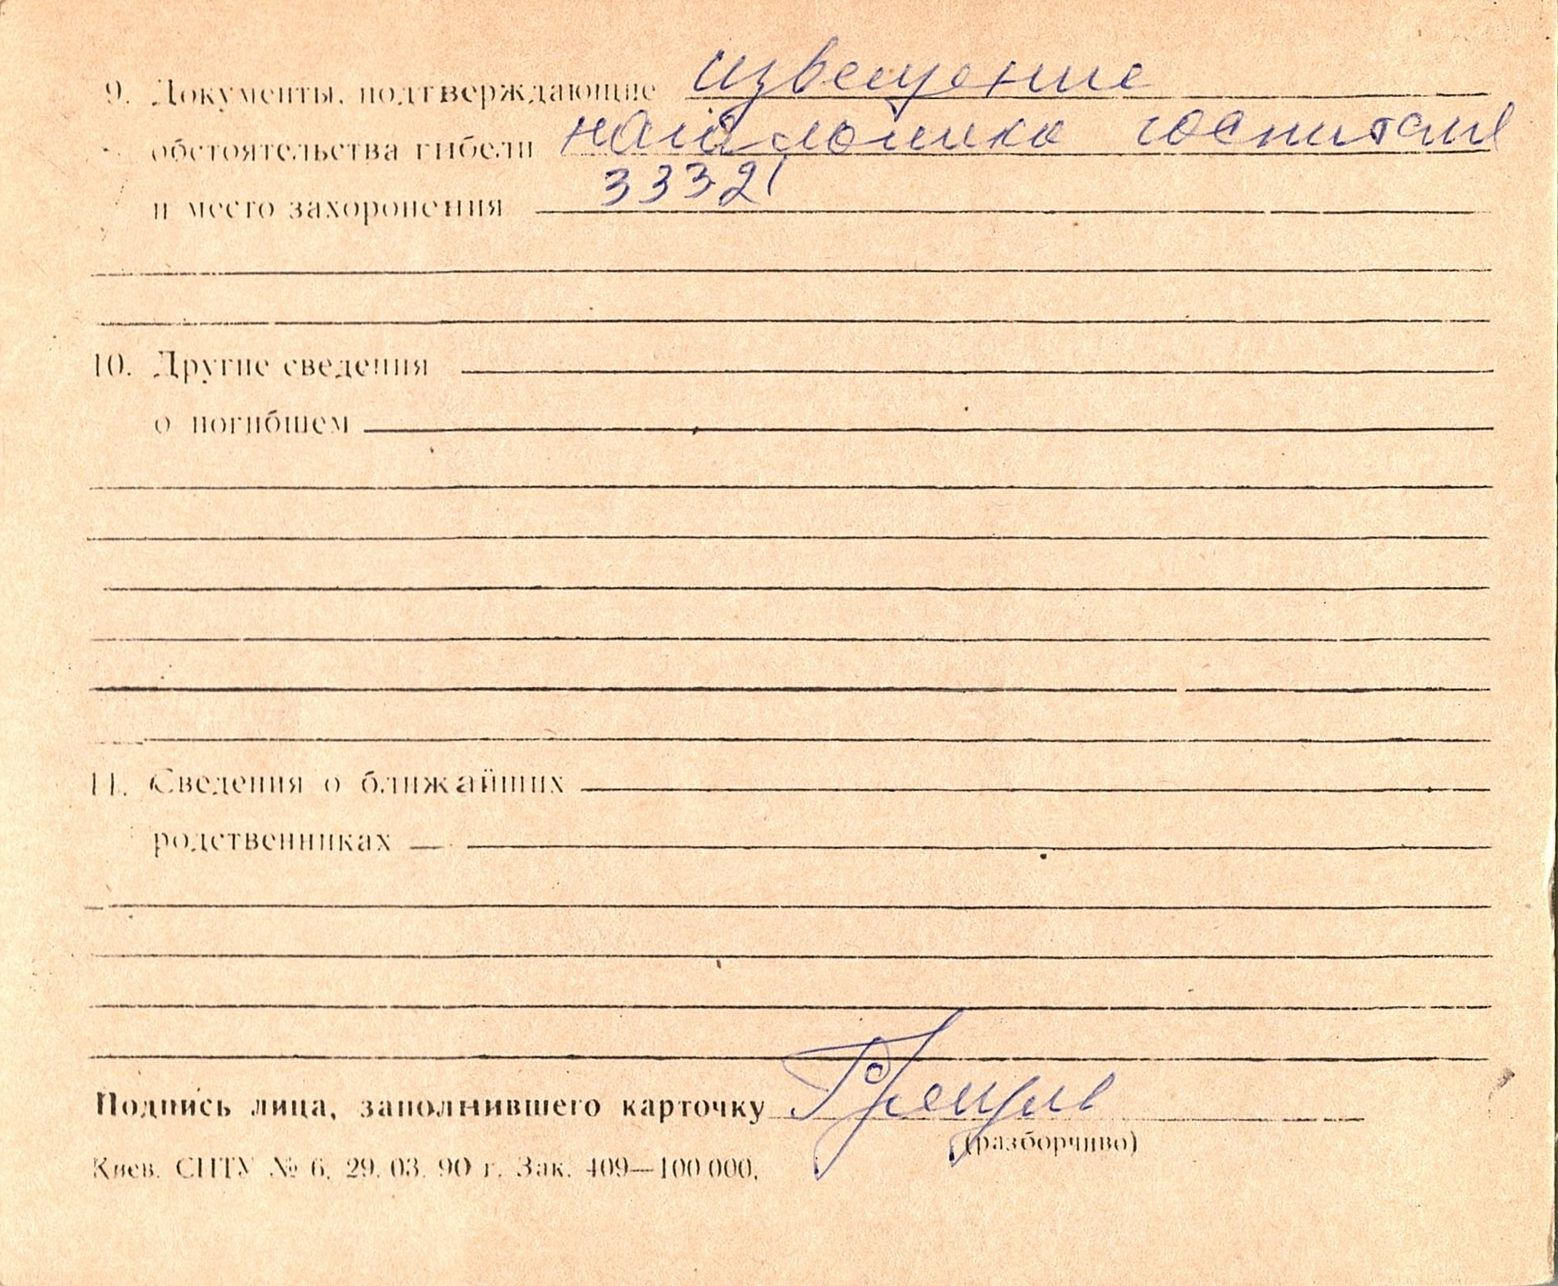 9. Документы, подтверждающие извещение
обстоятельства гибели начальника госпиталя
и место захоронения 3332
10. Другие сведения
о погибшем
11. Сведения о ближайших
родственниках
Подпись лица, заполнившего карточку
(разборчиво)
Киев. СПТУ № 6, 29. 03. 90 г. Зак. 409—100 000.